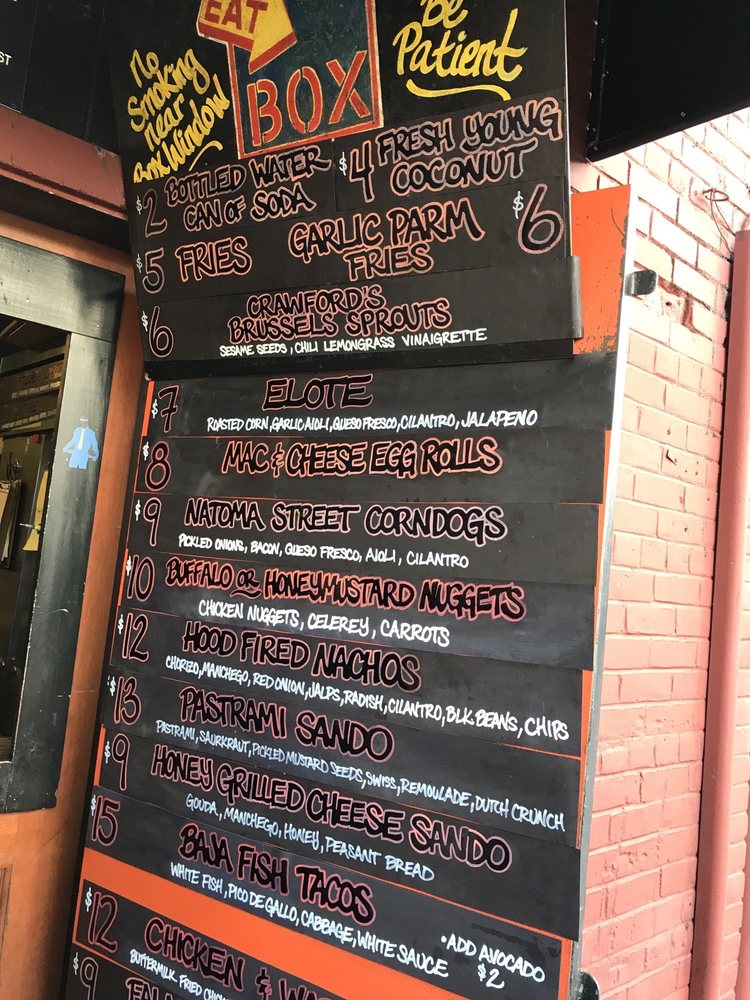 ST
EAT
BOX
No
Smoking
near
Box Window
Be
Patient
$2 BOTTLED WATER
CAN OF SODA
$4 FRESH YOUNG
COCONUT
$5 FRIES
GARLIC PARM
FRIES $6
$6 CRAWFORD'S
BRUSSELS SPROUTS
SESAME SEEDS, CHILI LEMONGRASS VINAIGRETTE
$7 ELOTE
ROASTED CORN, GARLIC AIOLI, QUESO FRESCO, CILANTRO, JALAPENO
$8 MAC & CHEESE EGG ROLLS
$9 NATOMA STREET CORNDOGS
PICKLED ONIONS, BACON, QUESO FRESCO, AIOLI, CILANTRO
$10 BUFFALO OR HONEYMUSTARD NUGGETS
CHICKEN NUGGETS, CELEREY, CARROTS
$12 HOOD FIRED NACHOS
CHORIZO, MANCHEGO, RED ONION, JALPS, RADISH, CILANTRO, BLK. BEANS, CHIPS
$13 PASTRAMI SANDO
PASTRAMI, SAURKRAUT, PICKLED MUSTARD SEEDS, SWISS, REMOULADE, DUTCH CRUNCH
$9 HONEY GRILLED CHEESE SANDO
GOUDA, MANCHEGO, HONEY, PEASANT BREAD
$15 BAJA FISH TACOS
WHITE FISH, PICO DE GALLO, CABBAGE, WHITE SAUCE
• ADD AVOCADO
$2
$12 CHICKEN &
BUTTERMILK FRIED
$9